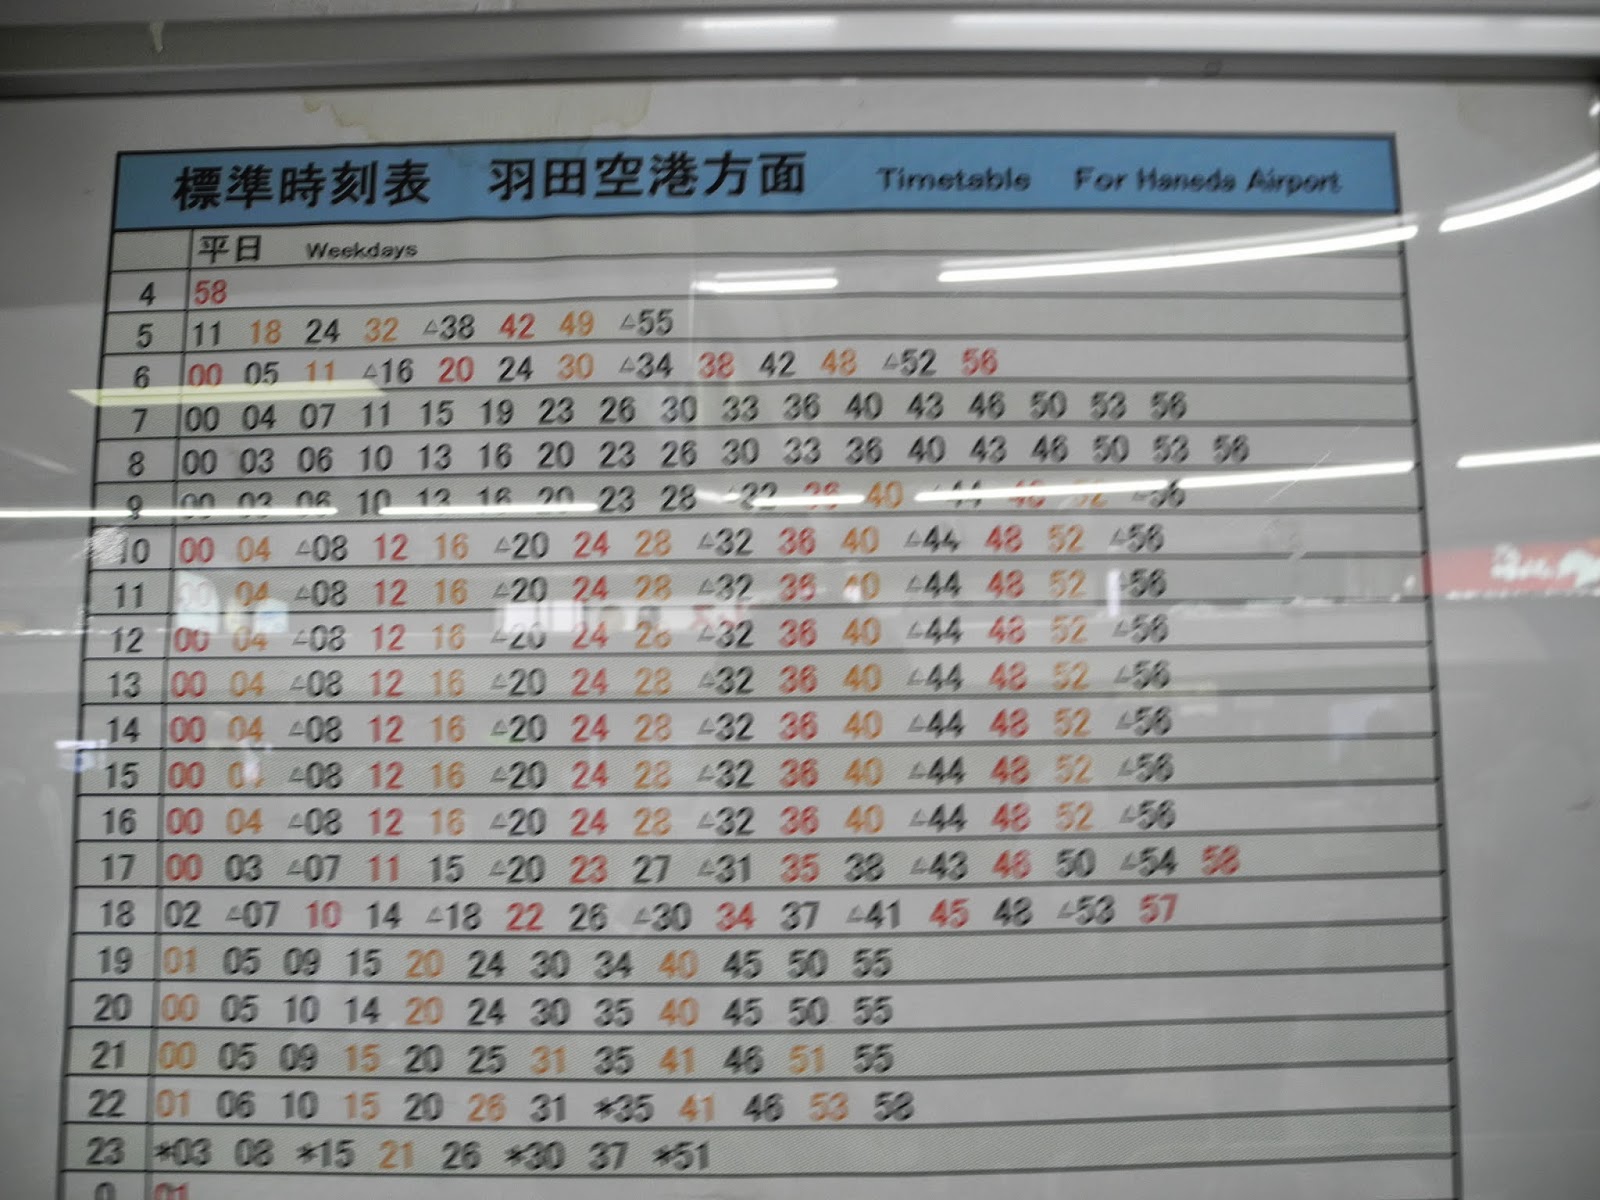 標準時刻表 羽田空港方面 Timetable For Haneda Airport
平日 Weekdays
4 58
5 11 18 24 32 △38 42 49 △55
6 00 05 11 △16 20 24 30 △34 38 42 48 △52 56
7 00 04 07 11 15 19 23 26 30 33 36 40 43 46 50 53 56
8 00 03 06 10 13 16 20 23 26 30 33 36 40 43 46 50 53 56
9 00 03 06 10 13 16 20 23 28 △32 36 40 △44 48 52 △56
10 00 04 △08 12 16 △20 24 28 △32 36 40 △44 48 52 △56
11 00 04 △08 12 16 △20 24 28 △32 36 40 △44 48 52 △56
12 00 04 △08 12 16 △20 24 28 △32 36 40 △44 48 52 △56
13 00 04 △08 12 16 △20 24 28 △32 36 40 △44 48 52 △56
14 00 04 △08 12 16 △20 24 28 △32 36 40 △44 48 52 △56
15 00 04 △08 12 16 △20 24 28 △32 36 40 △44 48 52 △56
16 00 04 △08 12 16 △20 24 28 △32 36 40 △44 48 52 △56
17 00 03 △07 11 15 △20 23 27 △31 35 38 △43 46 50 △54 58
18 02 △07 10 14 △18 22 26 △30 34 37 △41 45 48 △53 57
19 01 05 09 15 20 24 30 34 40 45 50 55
20 00 05 10 14 20 24 30 35 40 45 50 55
21 00 05 09 15 20 25 31 35 41 46 51 55
22 01 06 10 15 20 26 31 *35 41 46 53 58
23 *03 08 *15 21 26 *30 37 *51
0 01